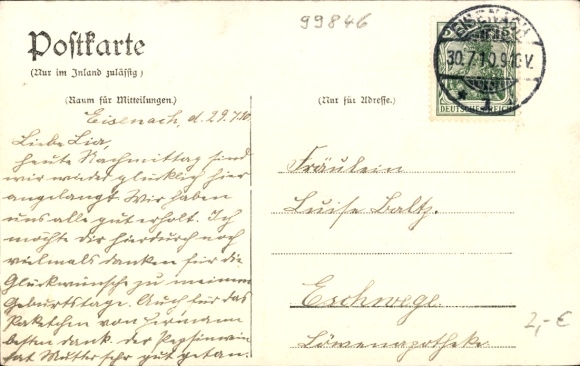 99846
Postkarte
(Nur im Inland zulässig)
(Raum für Mitteilungen.)
(Nur für Adresse.)
EISENACH
30.7.10.9-10V.
* 1
DEUTSCHES REICH
Eisenach, d. 29.7.10.
Liebe Lia,
heute Nachmittag sind
wir wieder glücklich hier
angelangt. Wir haben
uns alle gut erholt. Ich
möchte dir hierdurch noch
vielmals danken für die
Glückwünsche zu meinem
Geburtstage. Auch für das
Paketchen von Hermann
besten Dank. der Pepsinwein
hat Mutter sehr gut getan.
Fräulein
Luise Baltz.
Eschwege
Löwenapotheke
2,- €